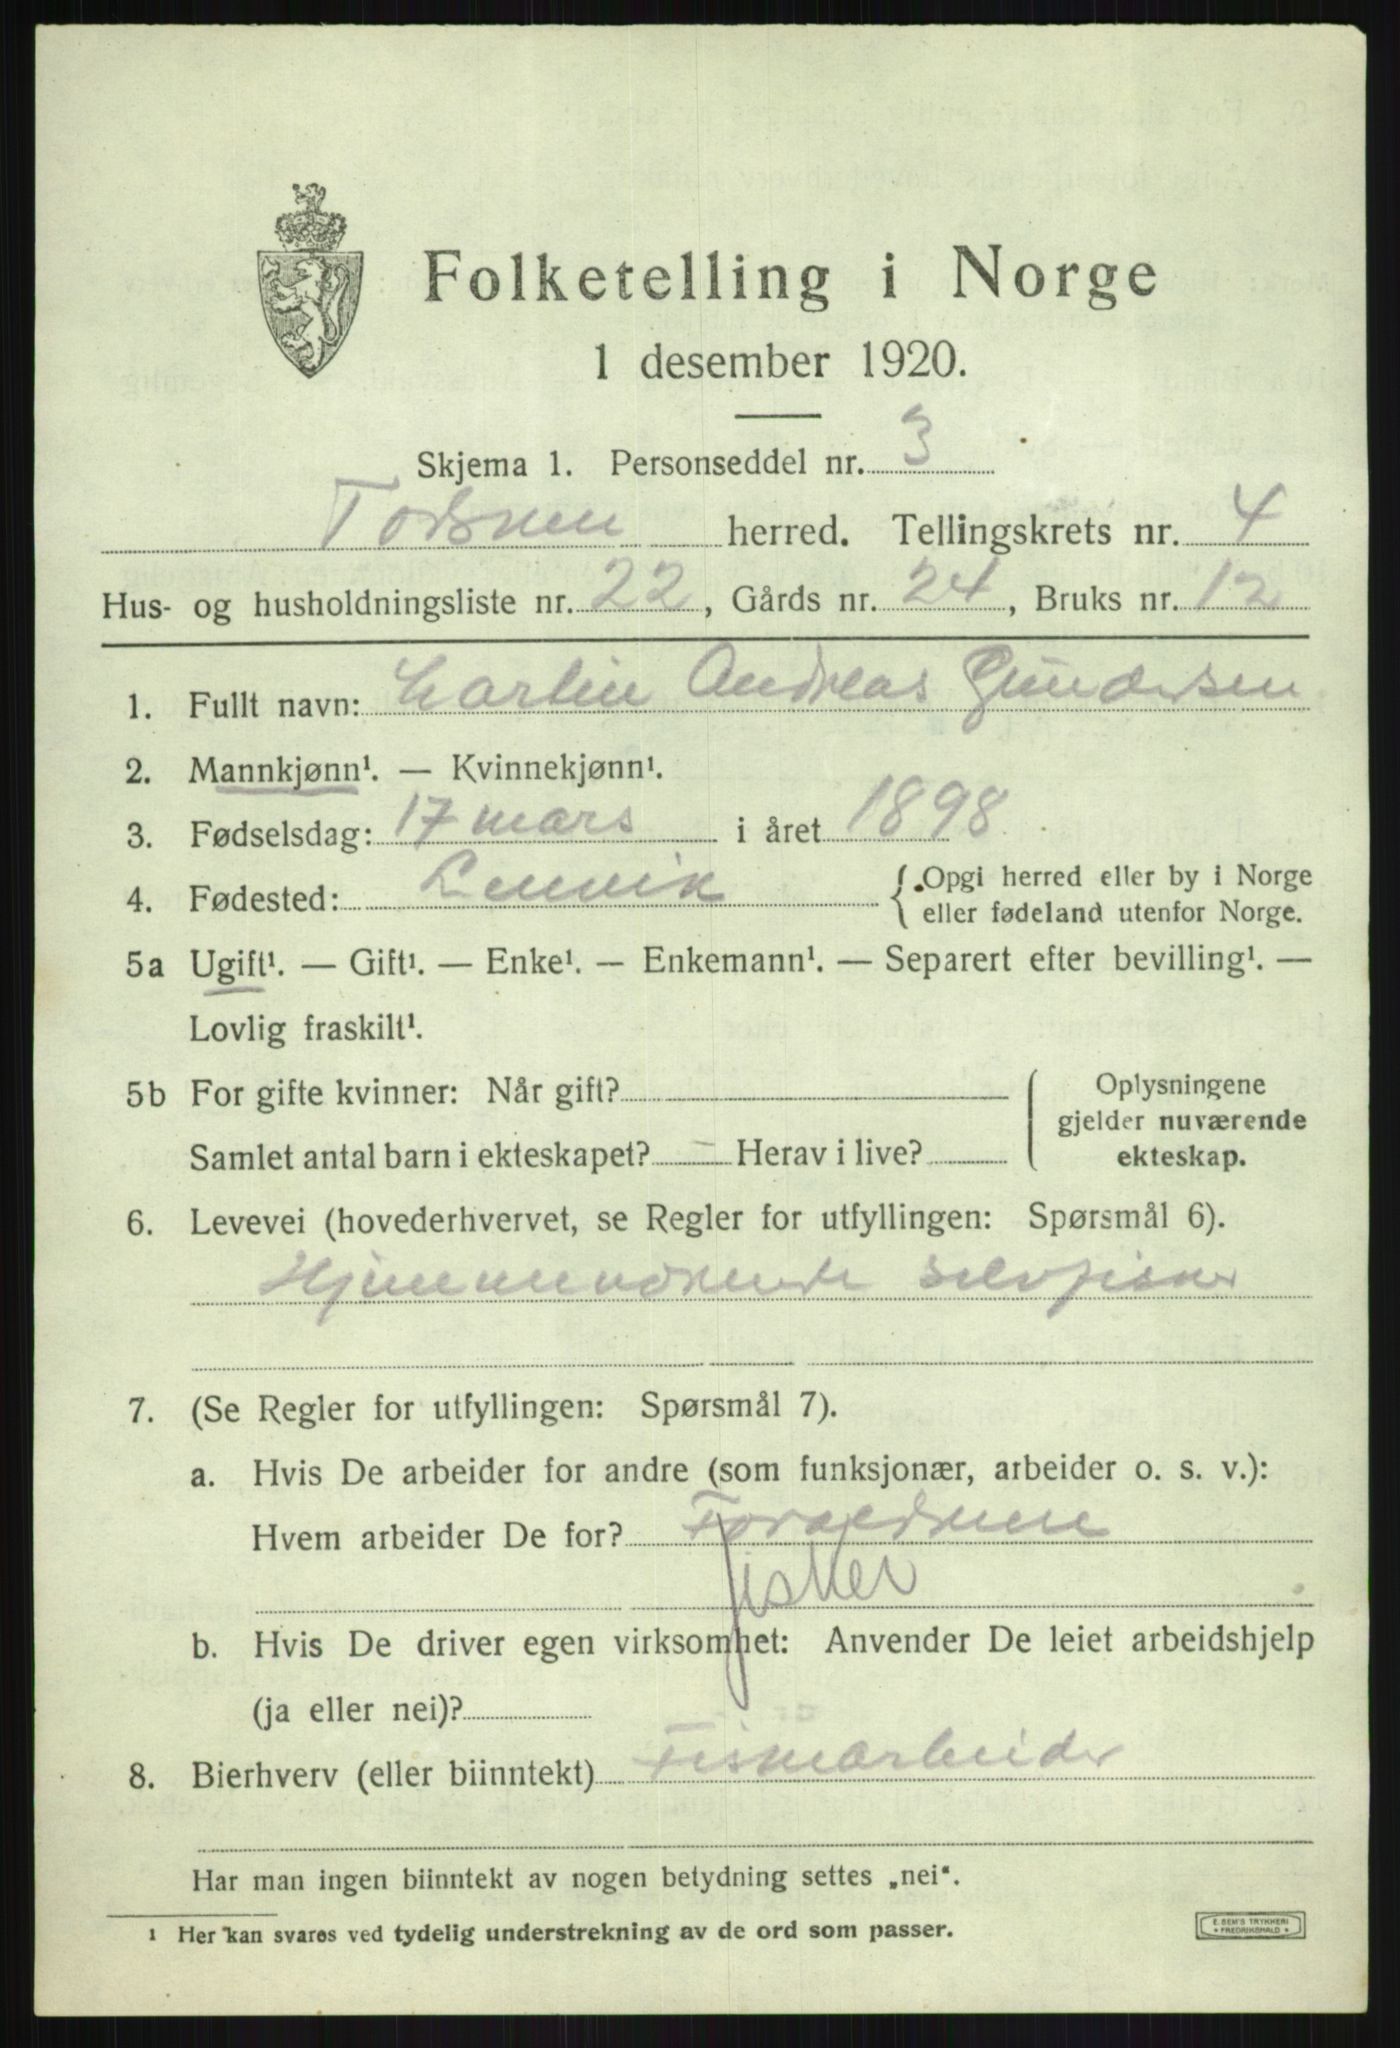 Folketelling i Norge
1 desember 1920.
Skjema 1. Personseddel nr. 3
Torsken herred. Tellingskrets nr. 4
Hus- og husholdningsliste nr. 22, Gårds nr. 24, Bruks nr. 12
1. Fullt navn: Andreas Gundersen
2. Mannkjønn¹. — Kvinnekjønn¹.
3. Fødselsdag: 17 mars i året 1898
4. Fødested: Lenvik { Opgi herred eller by i Norge
eller fødeland utenfor Norge.
5a Ugift¹. — Gift¹. — Enke¹. — Enkemann¹. — Separert efter bevilling¹. —
Lovlig fraskilt¹.
5b For gifte kvinner: Når gift?
Samlet antal barn i ekteskapet? — Herav i live?
Oplysningene
gjelder nuværende
ekteskap.
6. Levevei (hovederhvervet, se Regler for utfyllingen: Spørsmål 6).
Hjemmeværende selvfisker
7. (Se Regler for utfyllingen: Spørsmål 7).
a. Hvis De arbeider for andre (som funksjonær, arbeider o. s. v.):
Hvem arbeider De for? Forældrene
fisker
b. Hvis De driver egen virksomhet: Anvender De leiet arbeidshjelp
(ja eller nei)?
8. Bierhverv (eller biinntekt) Fiskarbeider
Har man ingen biinntekt av nogen betydning settes „nei“.
¹ Her kan svares ved tydelig understrekning av de ord som passer.
E. SEM'S TRYKKERI
FREDRIKSHALD